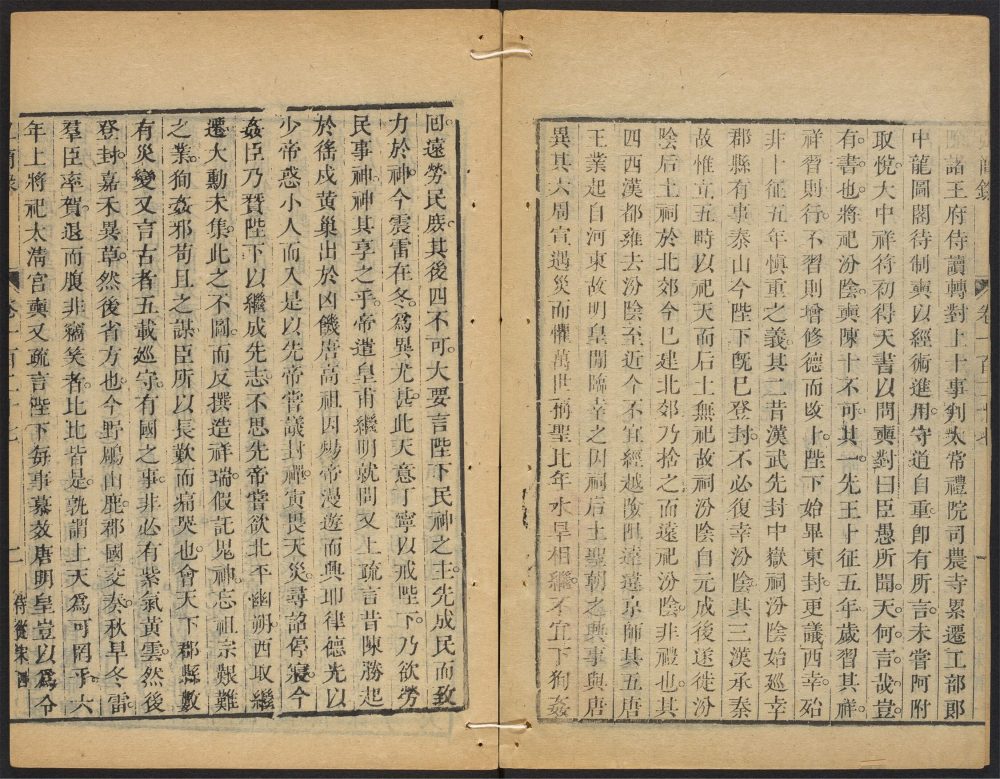 諸王府侍讀轉對上十事判太常禮院司農寺累遷工部郎
中龍圖閣待制奭以經術進用守道自重卽有所言未嘗阿附
取悅大中祥符初得天書以問奭對曰臣愚所聞天何言哉豈
有書也將祀汾陰奭陳十不可其一先王卜征五年歲習其祥
祥習則行不習則增修德而改卜陛下始畢東封更議西幸殆
非卜征五年愼重之義其二昔漢武先封中嶽祠汾陰始巡幸
郡縣有事泰山今陛下旣已登封不必復幸汾陰其三漢承秦
故惟立五畤以祀天而后土無祀故祠汾陰自元成後遂徙汾
陰后土祠於北郊今已建北郊乃捨之而遠祀汾陰非禮也其
四西漢都雍去汾陰至近今不宜經越險阻遠違京師其五唐
王業起自河東故明皇開隙幸之因祠后土聖朝之興事與唐
異其六周宣遇災而懼萬世稱聖比年水旱相繼不宜下狥姦
回遠勞民庶其後四不可大要言陛下民神之主先成民而致
力於神今震雷在冬爲異尤甚此天意丁寧以戒陛下乃欲勞
民事神神其享之乎帝遣皇甫繼明就問又上疏言昔陳勝起
於徭戍黃巢出於凶饑唐高祖因煬帝漫遊而興耶律德光以
少帝惑小人而入是以先帝嘗議封禪寅畏天災尋詔停寢今
姦臣乃贊陛下以繼成先志不思先帝嘗欲北平幽朔西取繼
遷大勳未集此之不圖而反撰造祥瑞假託鬼神忘祖宗艱難
之業狥姦邪苟且之謀臣所以長歎而痛哭也會天下郡縣數
有災變又言古者五載巡守有國之事非必有紫氣黃雲然後
登封嘉禾異草然後省方也今野鵰山鹿郡國交奏秋旱冬雷
羣臣率賀退而腹非竊笑者比比皆是孰謂上天爲可罔乎六
年上將祀太清宮奭又疏言陛下每事慕效唐明皇豈以爲令
卷一百二十七
二
侍從宋四